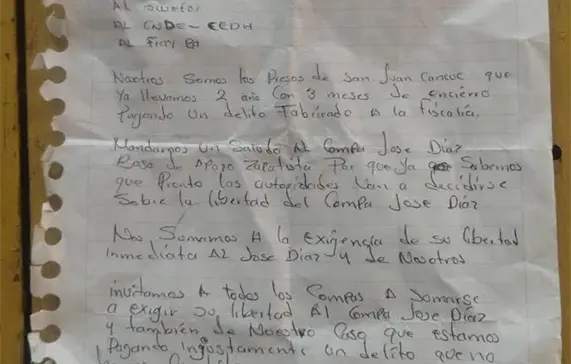 AL
AL CNDE - CEDH
AL Fray Ba
Nosotros Somos los Presos de San Juan Cancuc que
Ya llevamos 2 año Con 3 meses de encierro
Pagando Un delito Fabricado A la Fiscalia.
Mandamos Un Saludo AL Compa Jose Diaz
Base de Apoyo Zapatista Por que Ya Sabemos
que Pronto las autoridades Van a decidirse
Sobre la libertad del Compa Jose Diaz
Nos Sumamos A la exigencia de su libertad
inmediata AL Jose Diaz y de Nosotros
invitamos A todos los Compas A Somarse
a exigir su libertad Al Compa Jose Diaz
y también de Nuestro Caso que estamos
Pagando injustamente un delito que no